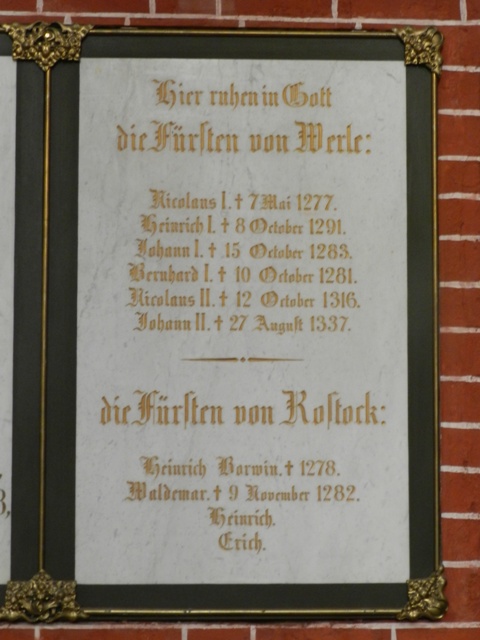 Hier ruhen in Gott
die Fürſten von Werle:
Nicolaus I. † 7 Mai 1277.
Heinrich I. † 8 October 1291.
Johann I. † 15 October 1283.
Bernhard I. † 10 October 1281.
Nicolaus II. † 12 October 1316.
Johann II. † 27 Auguſt 1337.
die Fürſten von Roſtock:
Heinrich Borwin. † 1278.
Waldemar. † 9 November 1282.
Heinrich.
Erich.